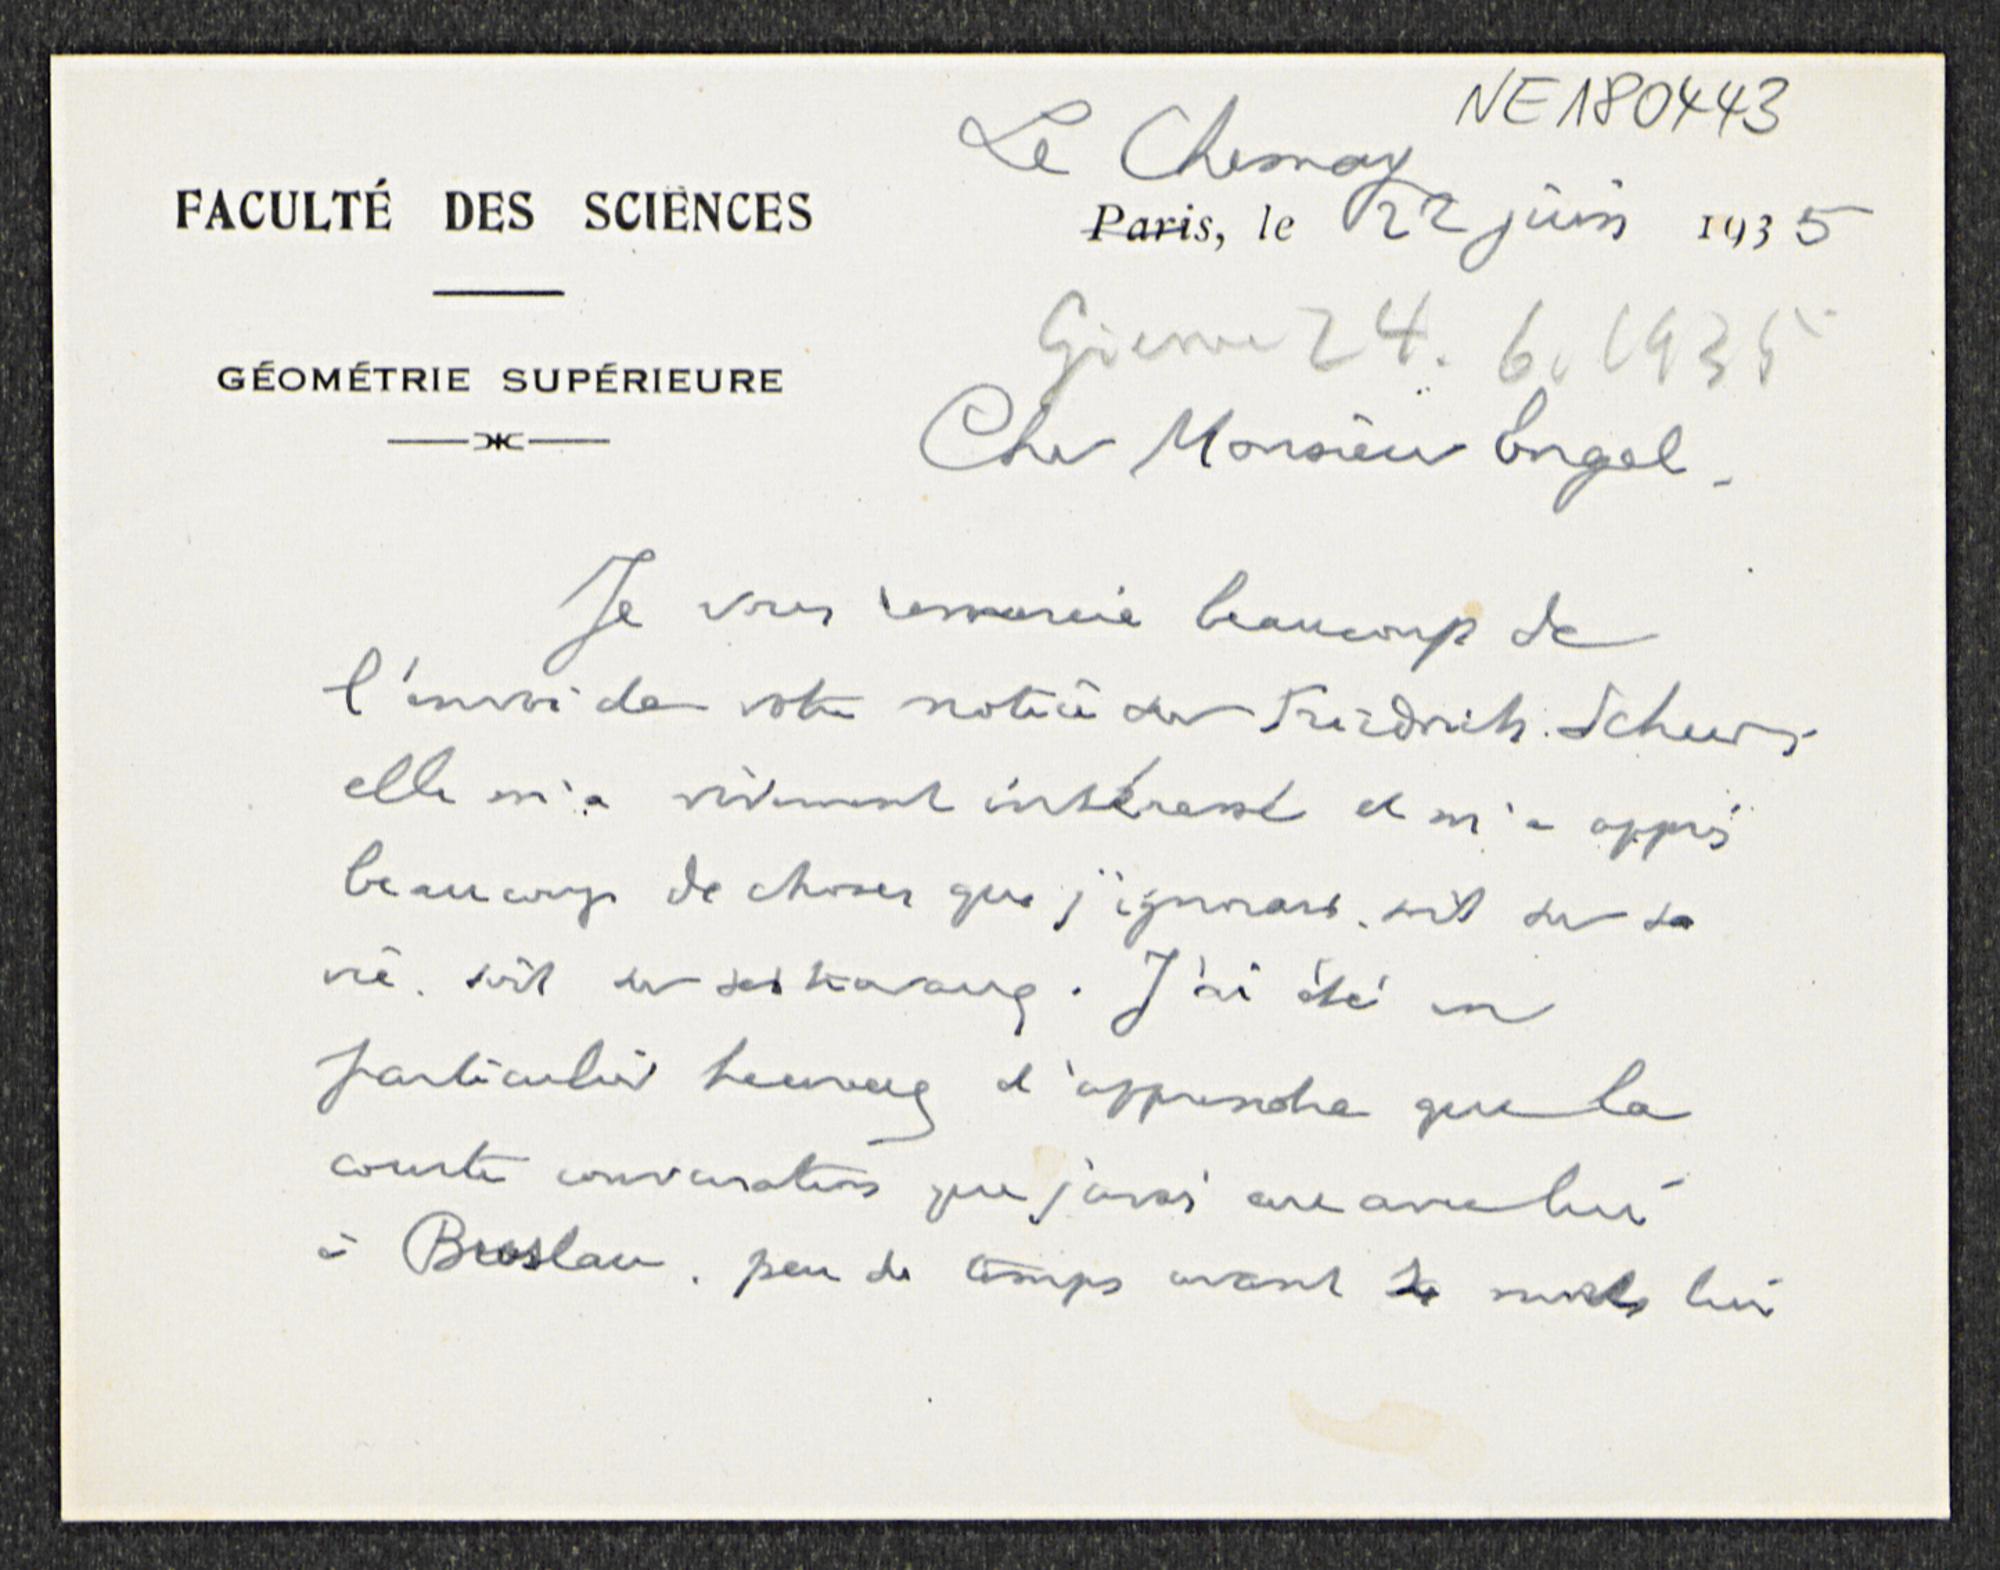 NE180443
Le Chesnay
FACULTÉ DES SCIENCES
Paris, le 22 juin 1935
24. 6. 1935
GÉOMÉTRIE SUPÉRIEURE
Cher Monsieur Engel,
Je vous remercie beaucoup de
l'envoi de votre notice sur Friedrich Schur;
elle m'a vivement intéressé et m'a appris
beaucoup de choses que j'ignorais, soit sur sa
vie, soit sur ses travaux. J'ai été en
particulier heureux d'apprendre que la
courte conversation que j'avais eue avec lui
à Breslau, peu de temps avant sa mort, lui